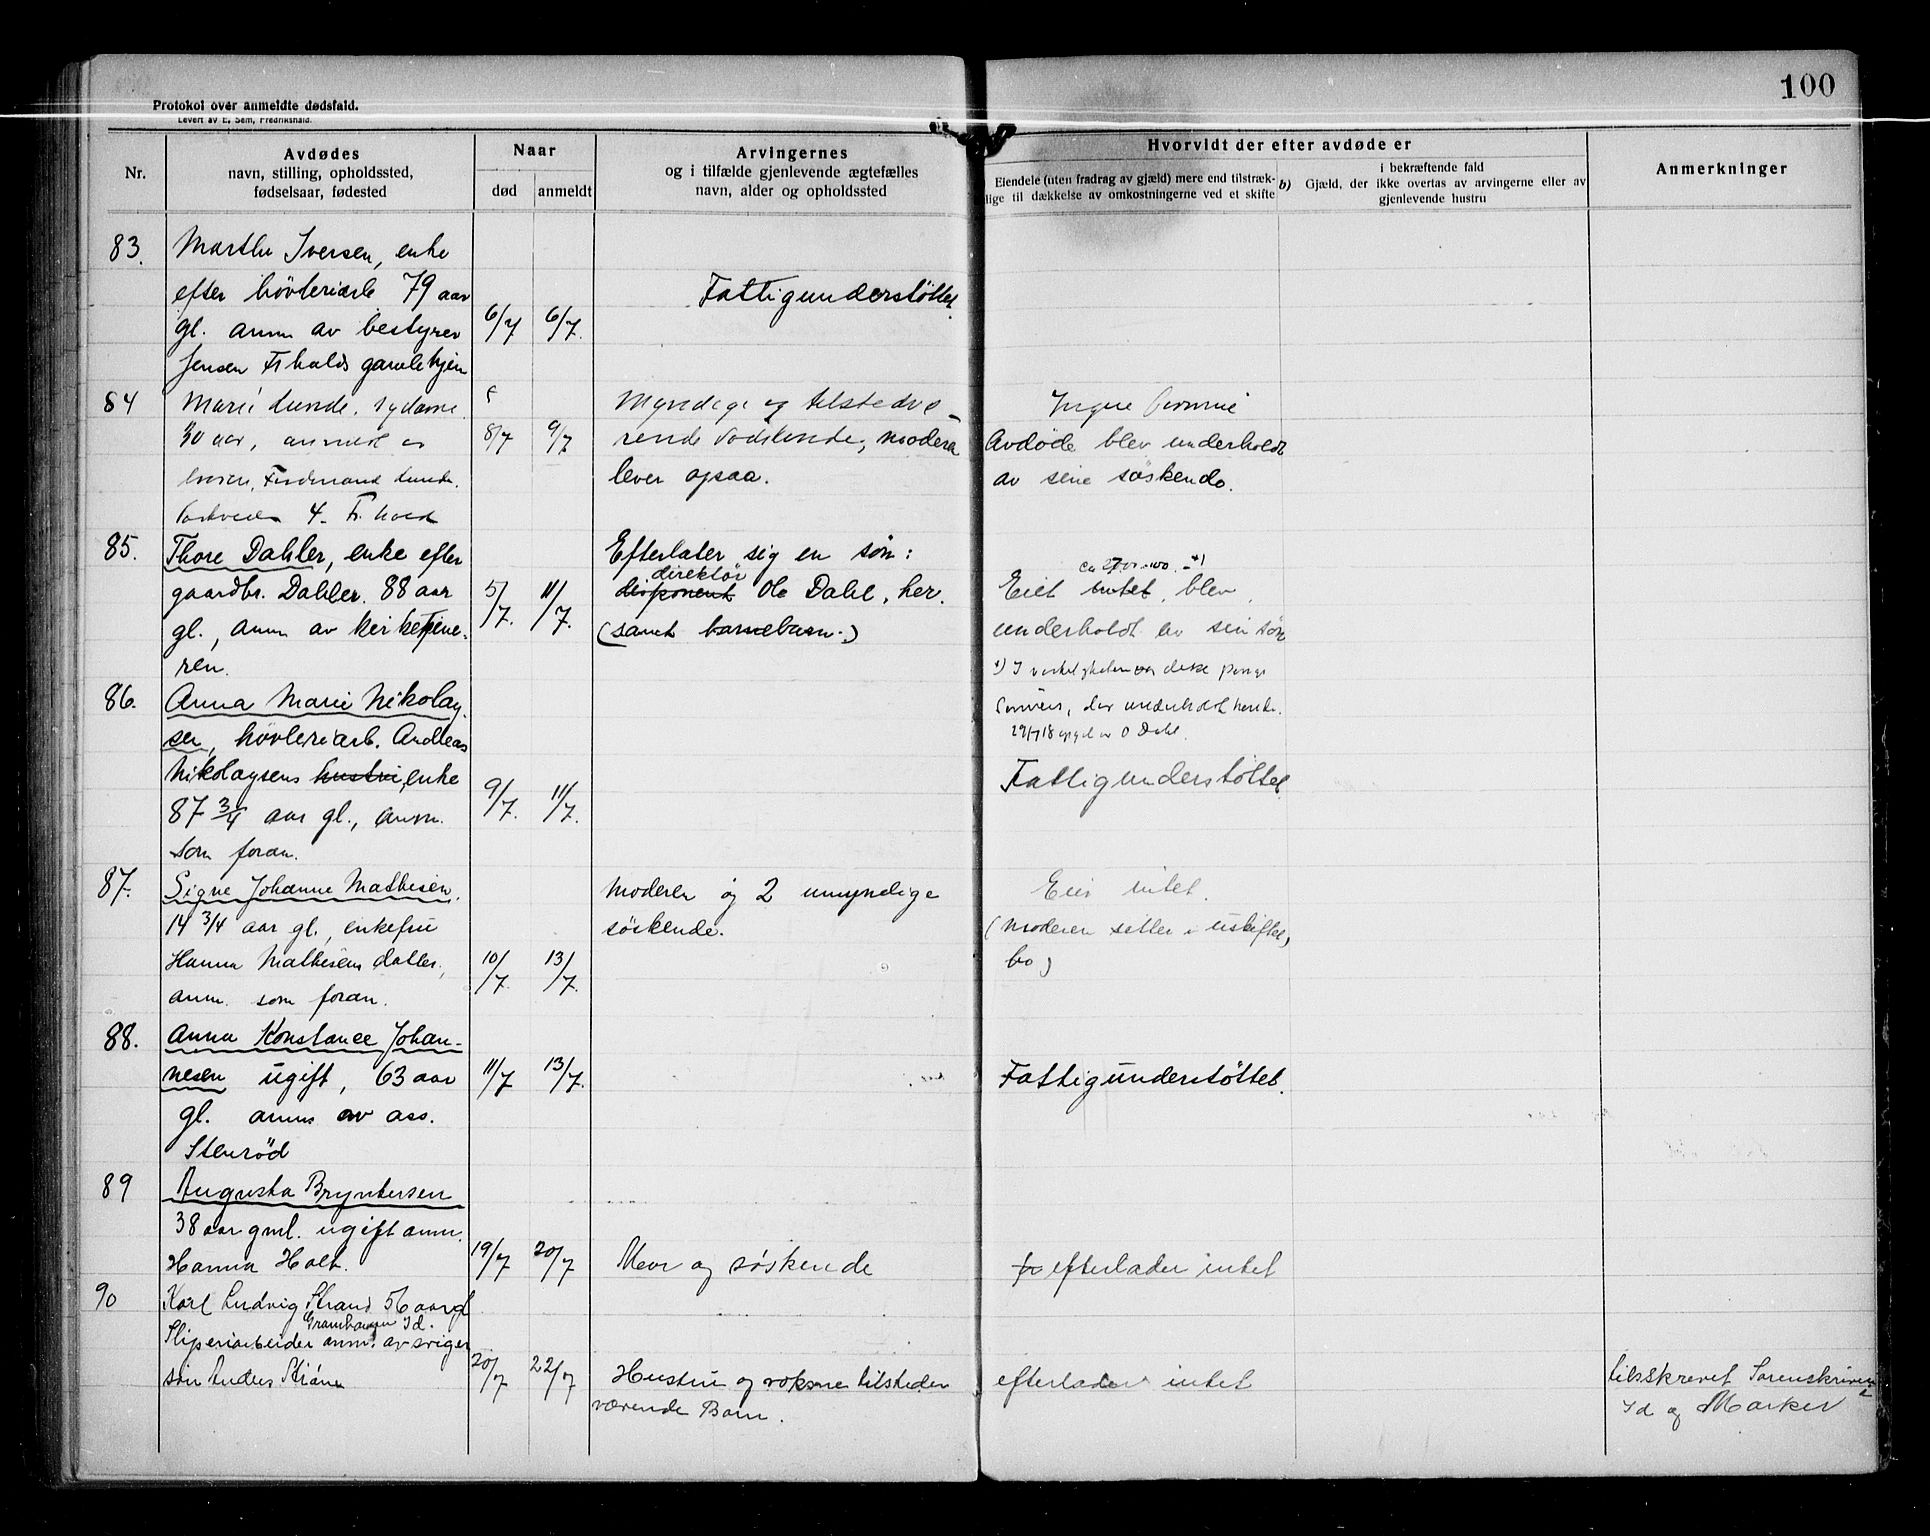 100
Protokol over anmeldte dødsfald.
Levert av E. Sem, Fredrikshald.
Nr.
Avdødes
navn, stilling, opholdssted,
fødselsaar, fødested
Naar
død
anmeldt
Arvingernes
og i tilfælde gjenlevende ægtefælles
navn, alder og opholdssted
Hvorvidt der efter avdøde er
Eiendele (uten fradrag av gjæld) mere end tilstræk-
lige til dækkelse av omkostningerne ved et skifte
b)
i bekræftende fald
Gjæld, der ikke overtas av arvingerne eller av
gjenlevende hustru
Anmerkninger
83.
Marthe Iversen, enke
efter høvleriarb 79 aar
gl. anm av bestyrer
Jensen Frhalds gamlehjem
6/7
6/7.
Fattigunderstöttet.
84
Marie Lunde, sydame.
30 aar, anmeldt av
broren, Ferdinand Lunde.
4. Fr.hald
8/7
9/7
Myndige og tilstedvæ-
rende sødskende, modern
lever ogsaa.
Ingen formue
Avdøde blev underholdt
av sine søskende.
85.
Thore Dahler, enke efter
gaardbr. Dahler. 88 aar
gl., anm av kirketjene-
ren.
5/7.
11/7.
Efterlater sig en søn:
direktör
disponent Ole Dahl, her.
(samt barnebarn.)
Eiet intet, blev
underholdt av sin søn
+) I virkeligheten var disse penge
sønnens, der underholdt hende.
29/7 18 opgit av O Dahl.
86.
Anna Marie Nikolay-
sen, høvleriarb. Andreas
Nikolaysens hustru, enke
87 3/4 aar gl., anm.
som foran.
9/7.
11/7.
Fattigunderstöttet.
87.
Signe Johanne Mathisen.
14 3/4 aar gl., enkefru
Hanna Mathisens datter,
anm. som foran.
10/7.
13/7.
Moderen og 2 umyndige
söskende.
Eier intet.
(Moderen sitter i uskiftet
bo)
88.
Anna Konstance Johan-
nesen ugift, 63 aar
gl. anm av ass.
Stenrød
11/7
13/7.
Fattigunderstöttet.
89
Augusta Bryntersen
38 aar gml. ugift anm.
Hanna Holt.
19/7
20/7
Mor og søskende
efterlader intet
90
Karl Ludvig Strand 56 aar gl
Id.
Sliperiarbeider anm. av sviger
søn Anders Strøm
20/7
22/7
Hustru og voksne tilsteder
værende Barn.
efterlader intet
tilskrevet Sorenskriveren
Id og Marker